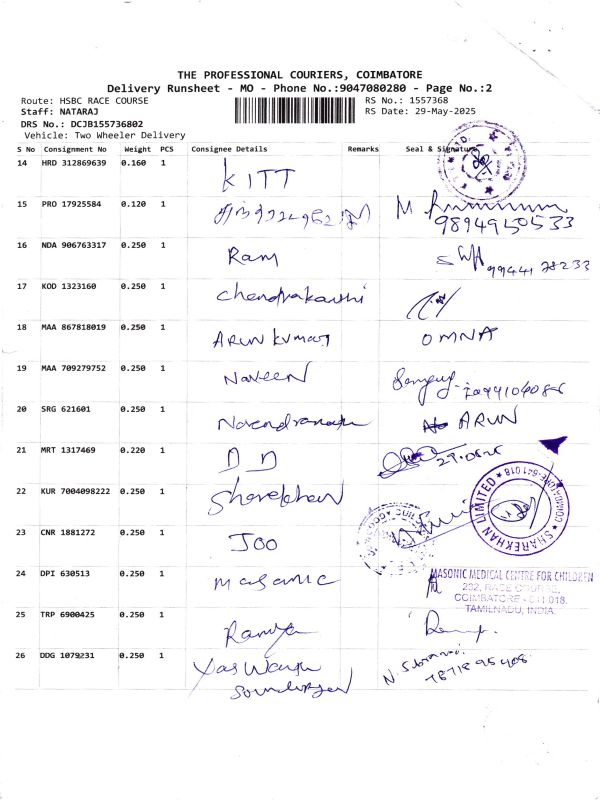 THE PROFESSIONAL COURIERS, COIMBATORE
Delivery Runsheet - MO - Phone No.:9047080280 - Page No.:2
Route: HSBC RACE COURSE RS No.: 1557368
Staff: NATARAJ RS Date: 29-May-2025
DRS No.: DCJB155736802
Vehicle: Two Wheeler Delivery
S No Consignment No Weight PCS Consignee Details Remarks Seal & Signature
14 HRD 312869639 0.160 1 KITT
15 PRO 17925584 0.120 1 M
9894950533
16 NDA 906763317 0.250 1 Ram
99441 28233
17 KOD 1323160 0.250 1 Chendrakanthi
18 MAA 867818019 0.250 1 ARUN KUMAR OMNA
19 MAA 709279752 0.250 1 NAVEEN
20 SRG 621601 0.250 1 ARUN
21 MRT 1317469 0.220 1 D D
29.05.25
22 KUR 7004098222 0.250 1 Sharekhan
SHAREKHAN LIMITED
COIMBATORE-641 018
23 CNR 1881272 0.250 1 JOO
24 DPI 630513 0.250 1 masonic
MASONIC MEDICAL CENTRE FOR CHILDREN
232, RACE COURSE,
COIMBATORE - 641 018.
TAMILNADU, INDIA.
25 TRP 6900425 0.250 1 Ramya
26 DDG 1079231 0.250 1